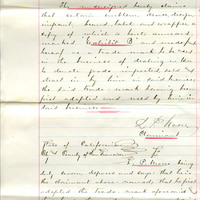 The undersigned hereby claims
that certain emblem, device, design,
imprint, brand, label, and wrapper a
copy of which is hereto annexed,
marked "Exhibit B" and
hereof as a trade mark to be used
in the business of dealing in
to denote goods imported, sold
dealt in by him said
the said trade mark having been
first adopted and used by him in
said business
Claimant
State of California
City & County of San Francisco
being
duly sworn deposes and says that he is
the claimant above named, that he first
adopted the trade mark aforesaid